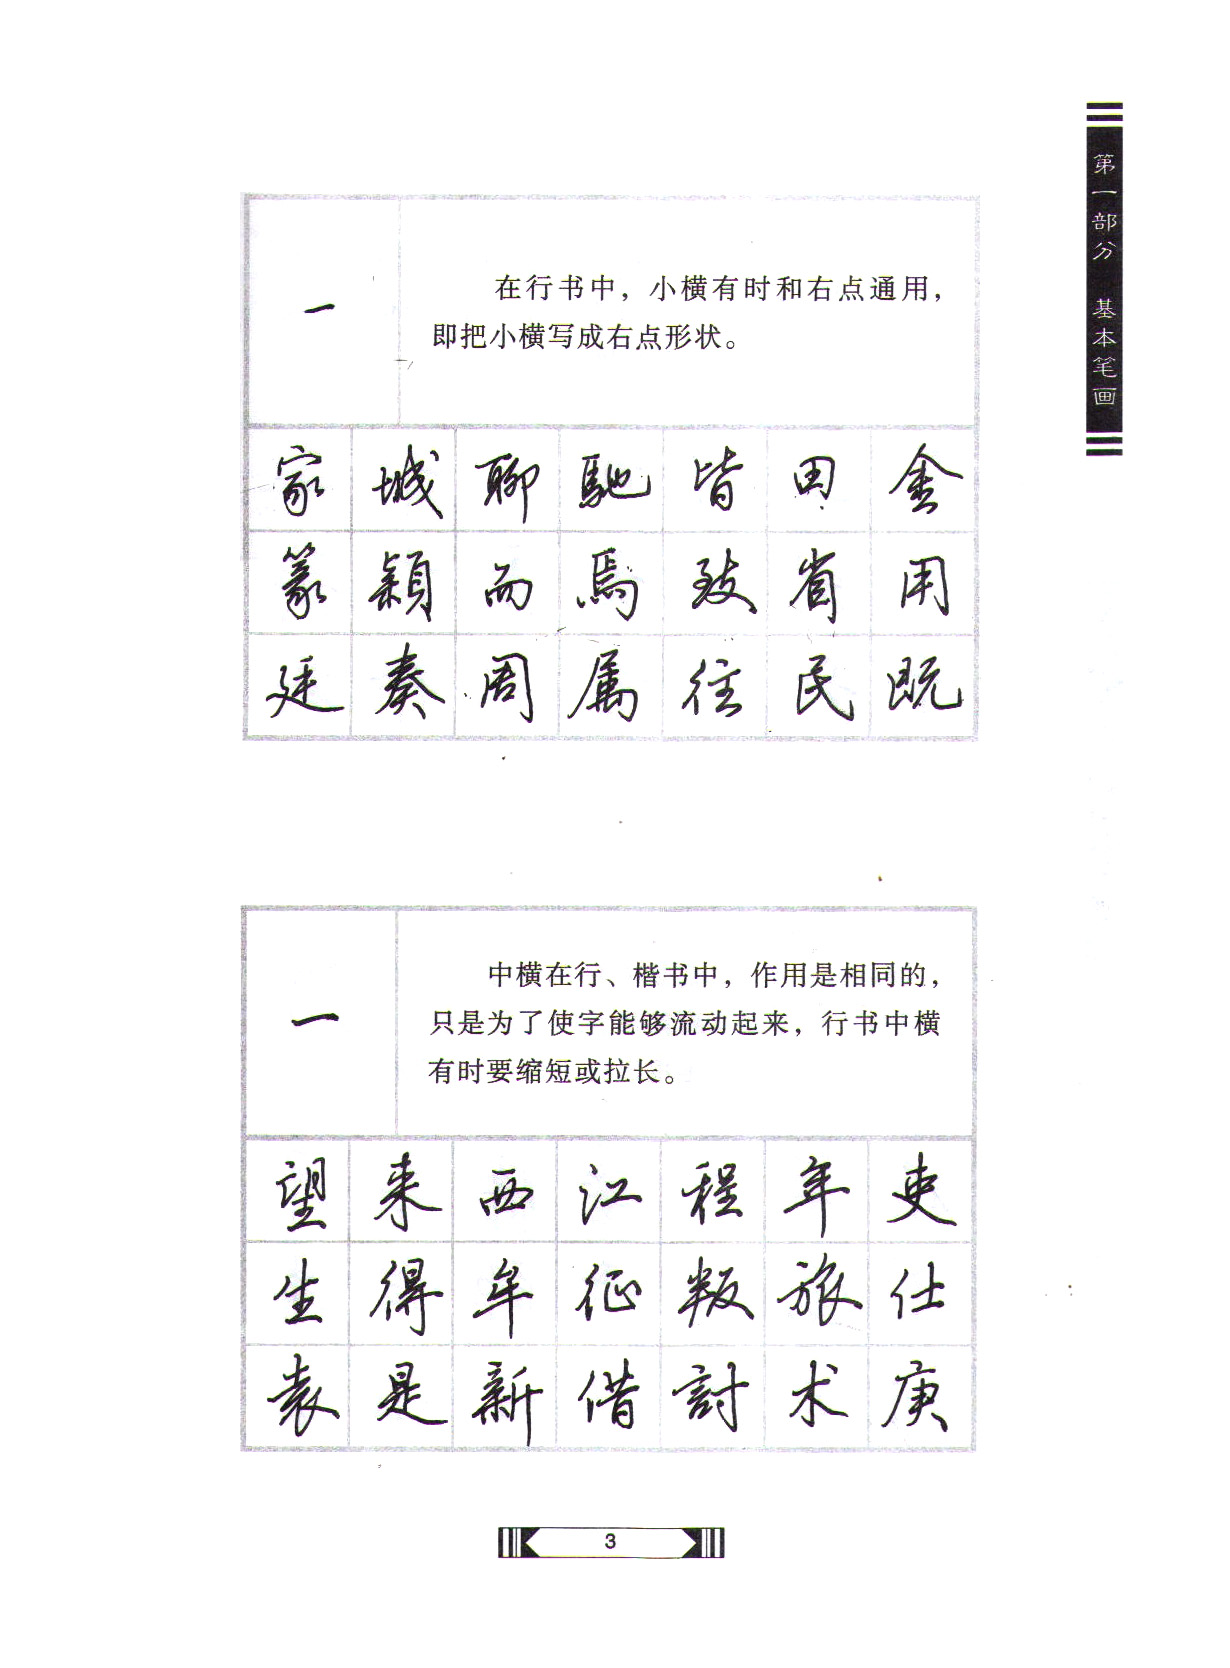 第一部分 基本笔画
一
在行书中，小横有时和右点通用，
即把小横写成右点形状。
家 城 聊 馳 皆 田 金
篆 穎 而 焉 致 省 用
廷 奏 周 属 往 民 既
一
中横在行、楷书中，作用是相同的，
只是为了使字能够流动起来，行书中横
有时要缩短或拉长。
望 来 西 江 程 年 吏
生 得 牟 征 叛 旅 仕
袁 是 新 借 討 术 庚
3